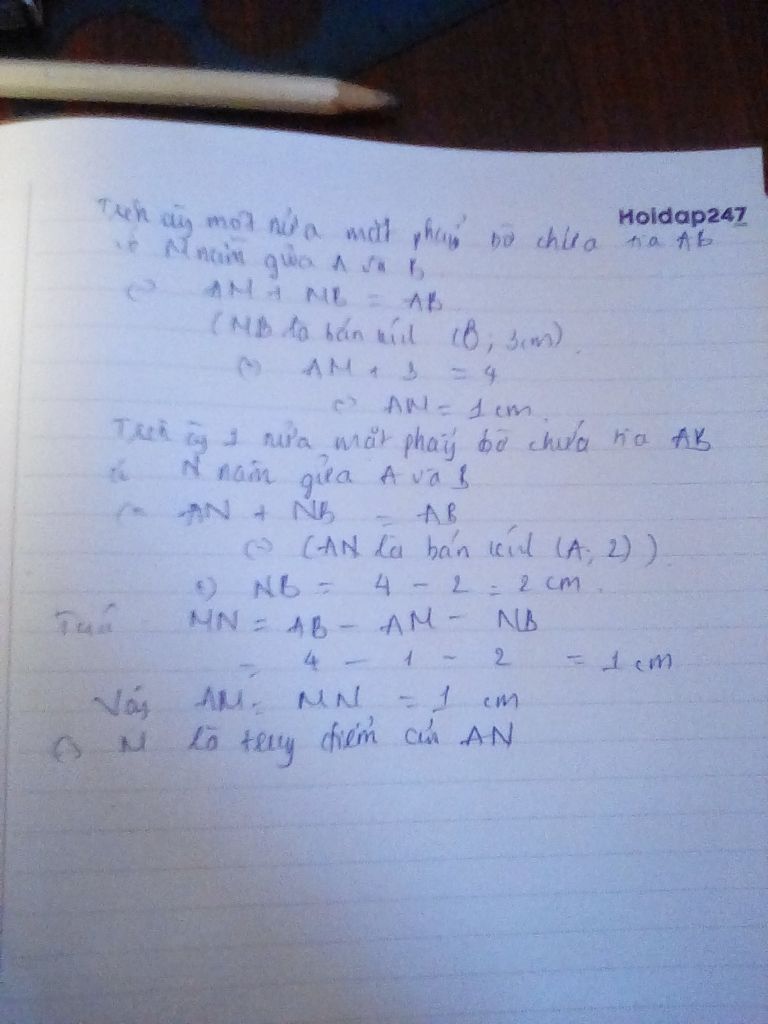 Holdap247
Trên cùg một nửa mặt phẳg bờ chứa tia AB
có M nằm giữa A và B
(=) AM + MB = AB
(MB là bán kíh (B; 3cm)
(=) AM + 3 = 4
(=) AM = 1 cm
Trên cùg 1 nửa mặt phẳg bờ chứa tia AB
có N nằm giữa A và B
(=) AN + NB = AB
(=) (AN là bán kíh (A; 2))
(=) NB = 4 - 2 = 2 cm.
MN = AB - AM - NB
= 4 - 1 - 2 = 1 cm
Vậy AM = MN = 1 cm
(=) M là trug điểm của AN